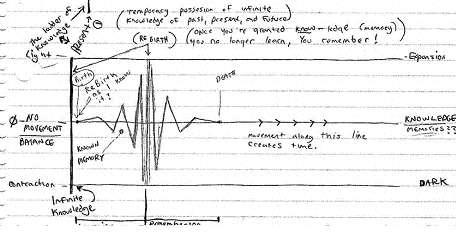 the ladder of
knowledge
Light
Present
Temporary possession of infinite
Knowledge of past, present, and future
(REBIRTH)
once you're granted know-ledge (memory)
you no longer learn, You remember!
Expansion
Birth
ReBirth
as I know
it?
DEATH
Ø - NO
MOVEMENT/
BALANCE
KNOWN
MEMORY
movement along this line
creates time.
KNOWLEDGE
MEMORIES??
contraction
DARK
Infinite
Knowledge